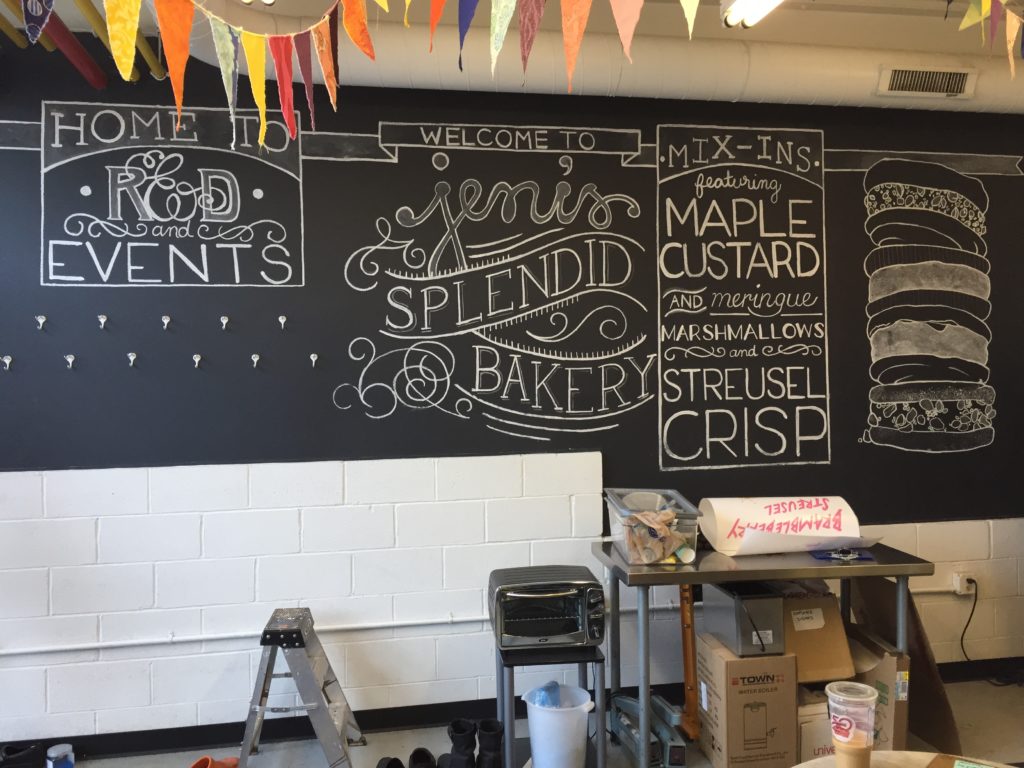 HOME TO
R&D
and
EVENTS
WELCOME TO
jeni's
SPLENDID
BAKERY
MIX-INS
featuring
MAPLE
CUSTARD
AND meringue
MARSHMALLOWS
and
STREUSEL
CRISP
BRAMBLEBERRY
STREUSEL
TOWN
WATER BOILER